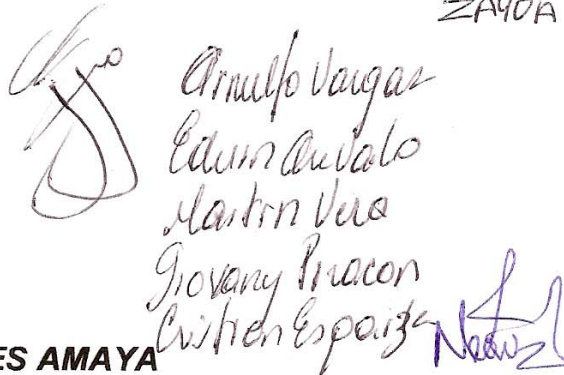 ZAYDA
Arnulfo Vargas
Edwin Arevalo
Martin Vera
Giovany Piracon
Cristien Esparza
ES AMAYA